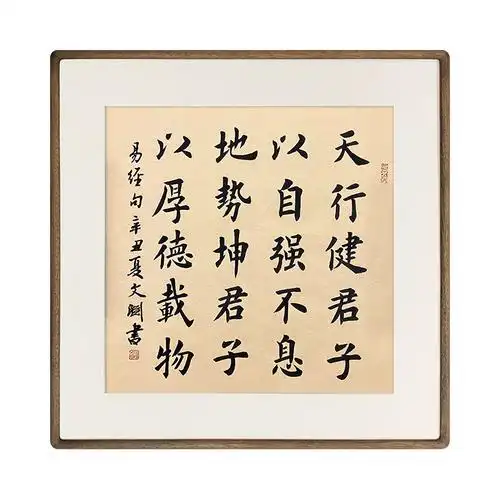 天行健君子
以自强不息
地势坤君子
以厚德載物
易经句辛丑夏文 書